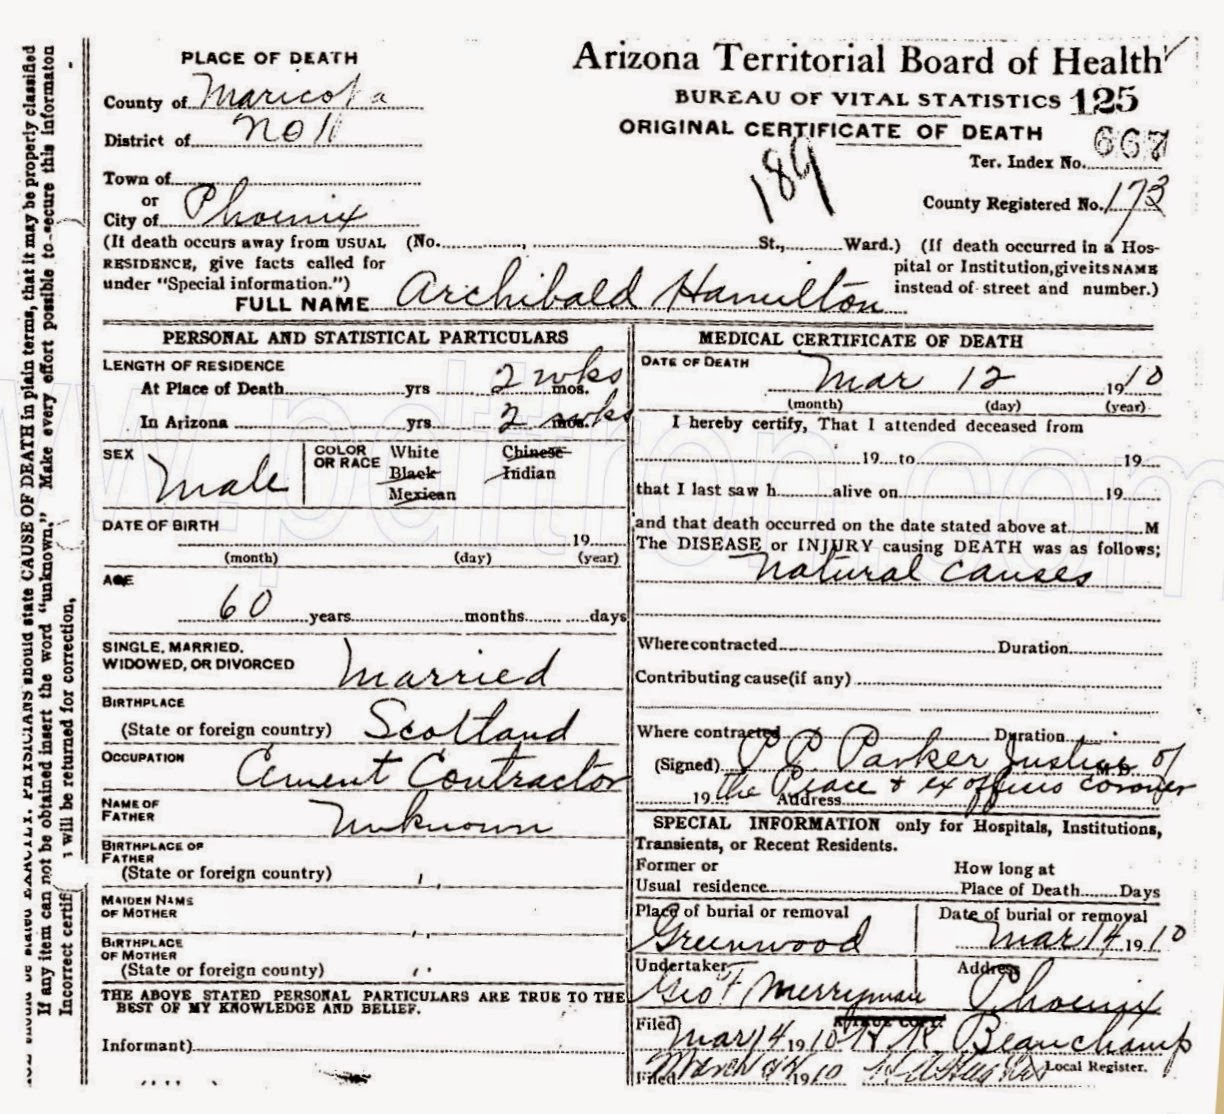 PLACE OF DEATH
County of Maricopa
District of No 11
Town of
or
City of Phoenix
(If death occurs away from USUAL
RESIDENCE, give facts called for
under "Special information.")
Arizona Territorial Board of Health
BUREAU OF VITAL STATISTICS 125
ORIGINAL CERTIFICATE OF DEATH
189
Ter. Index No. 667
County Registered No. 173
(No. , St., Ward.) (If death occurred in a Hos-
pital or Institution, give its NAME
instead of street and number.)
FULL NAME Archibald Hamilton
PERSONAL AND STATISTICAL PARTICULARS
LENGTH OF RESIDENCE
At Place of Death yrs 2 wks mos.
In Arizona yrs 2 wks mos.
SEX Male
COLOR OR RACE White Chinese
Black Indian
Mexican
DATE OF BIRTH
19
(month) (day) (year)
AGE
60 years months days
SINGLE, MARRIED,
WIDOWED, OR DIVORCED Married
BIRTHPLACE
(State or foreign country) Scotland
OCCUPATION Cement Contractor
NAME OF
FATHER Unknown
BIRTHPLACE OF
FATHER
(State or foreign country) "
MAIDEN NAME
OF MOTHER "
BIRTHPLACE
OF MOTHER
(State or foreign county) "
THE ABOVE STATED PERSONAL PARTICULARS ARE TRUE TO THE
BEST OF MY KNOWLEDGE AND BELIEF.
Informant)
MEDICAL CERTIFICATE OF DEATH
DATE OF DEATH
Mar 12 1910
(month) (day) (year)
I hereby certify, That I attended deceased from
19 to 19
that I last saw h alive on 19
and that death occurred on the date stated above at M
The DISEASE or INJURY causing DEATH was as follows;
Natural causes
Where contracted Duration
Contributing cause (if any)
Where contracted Duration
(Signed) P P Parker Justice of M.D.
19 the Peace & ex officio coroner Address
SPECIAL INFORMATION only for Hospitals, Institutions,
Transients, or Recent Residents.
Former or How long at
Usual residence Place of Death Days
Place of burial or removal Date of burial or removal
Greenwood Mar 14 1910
Undertaker Address
Geo F Merryman Phoenix
Filed Mar 14 1910 H K Beauchamp
Filed March 1910 Local Register.
PHYSICIANS should state CAUSE OF DEATH in plain terms, that it may be properly classified
If any item can not be obtained insert the word "unknown." Make every effort possible to secure this informaton
Incorrect certif will be returned for correction,